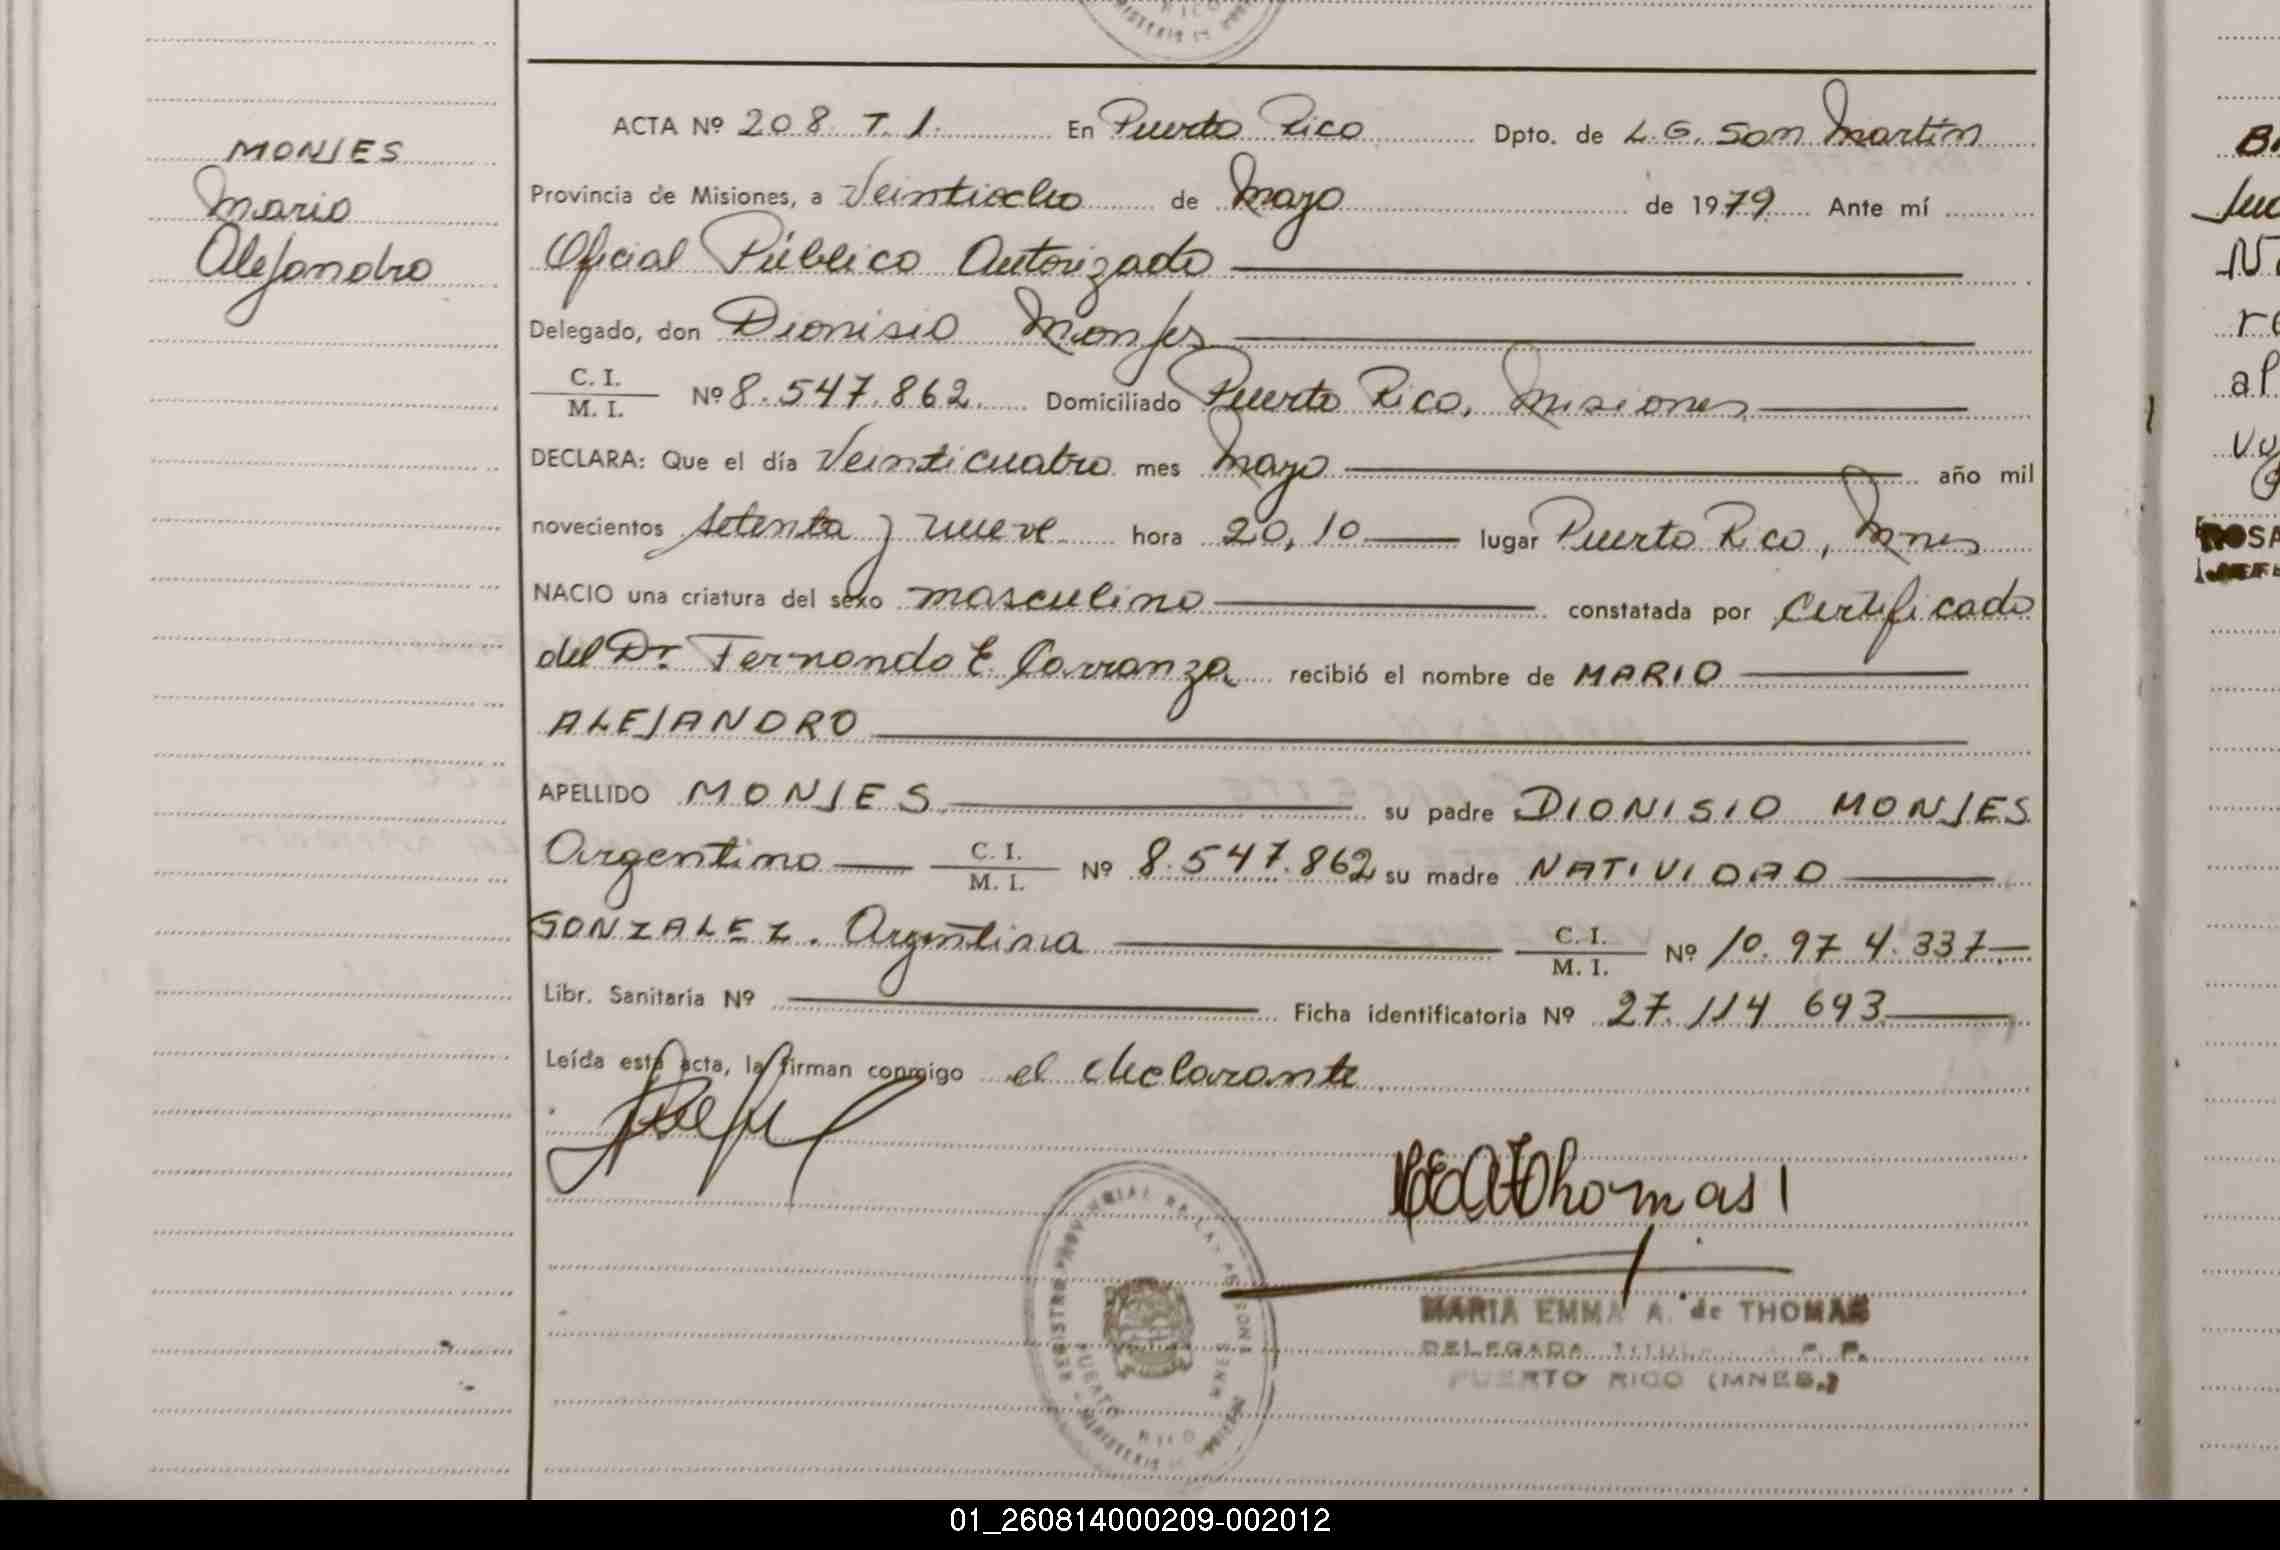 MONJES
Mario
Alejandro
ACTA Nº 208 T. 1. En Puerto Rico Dpto. de L.G. San Martín
Provincia de Misiones, a Veintiocho de Mayo de 1979 Ante mí
Oficial Público Autorizado
Delegado, don Dionisio Monjes
C. I.
M. I. Nº 8.547.862. Domiciliado Puerto Rico, Misiones
DECLARA: Que el día Veinticuatro mes Mayo año mil
novecientos setenta y nueve hora 20,10 lugar Puerto Rico, Mnes
NACIO una criatura del sexo masculino constatada por Certificado
del Dr. Fernando E. Carranza recibió el nombre de MARIO
ALEJANDRO
APELLIDO MONJES su padre DIONISIO MONJES
Argentino C. I. M. I. Nº 8.547.862 su madre NATIVIDAD
GONZALEZ. Argentina C. I. M. I. Nº 10.974.337
Libr. Sanitaria Nº Ficha identificatoria Nº 27.114 693
Leída esta acta, la firman conmigo el declarante
Thomas
REGISTRO PROVINCIAL DE LAS PERSONAS
PUERTO RICO MNES
MARIA EMMA A. de THOMAS
DELEGADA
PUERTO RICO (MNES.)
01_260814000209-002012